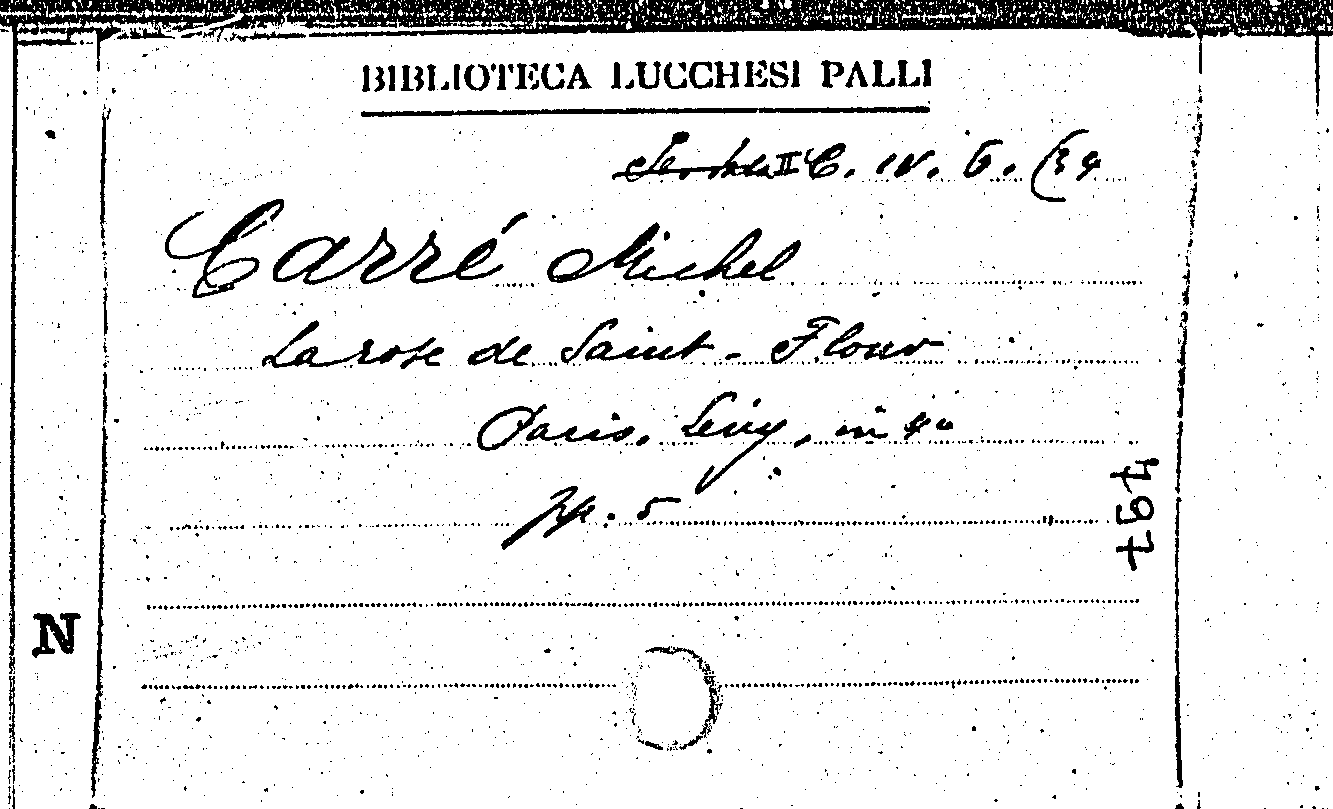 BIBLIOTECA LUCCHESI PALLI
II C. IV. 6. (34
Carré Michel
La rose de Saint-Flour
Paris, Levy, in 4°
pp. 5
497
N